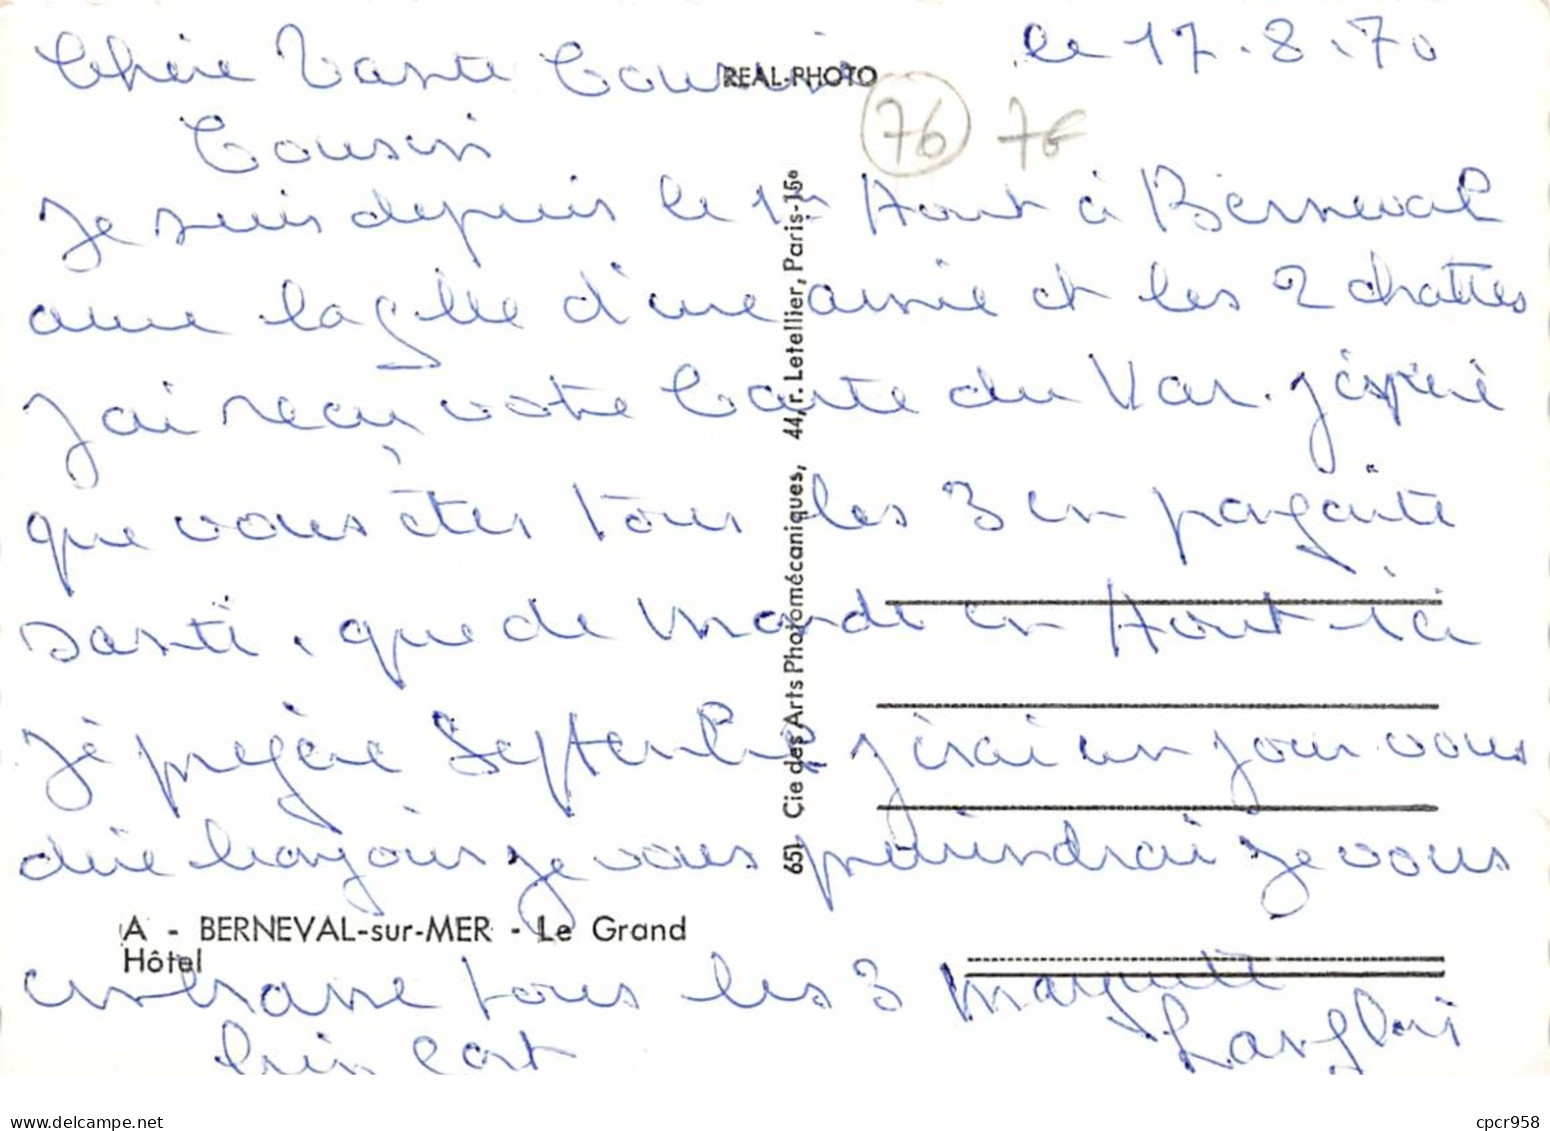 le 17.8.70
Chère Tante Cousin
REAL-PHOTO
Cousin
76 76
Je suis depuis le 1er Aout à Berneval
avec la fille d'une amie et les 2 chattes
J'ai reçu votre Carte du Var. J'éspère
que vous êtes tous les 3 en parfaite
santé, que de monde en Aout ici
Je préfère Septembre j'irai un jour vous
dire bonjour je vous préviendrai je vous
A - BERNEVAL-sur-MER - Le Grand
Hôtel
embrasse tous les 3 Marguerite
bien Langlois
651 Cie des Arts Photomécaniques, 44, r. Letellier, Paris-15e
cpcr958
www.delcampe.net